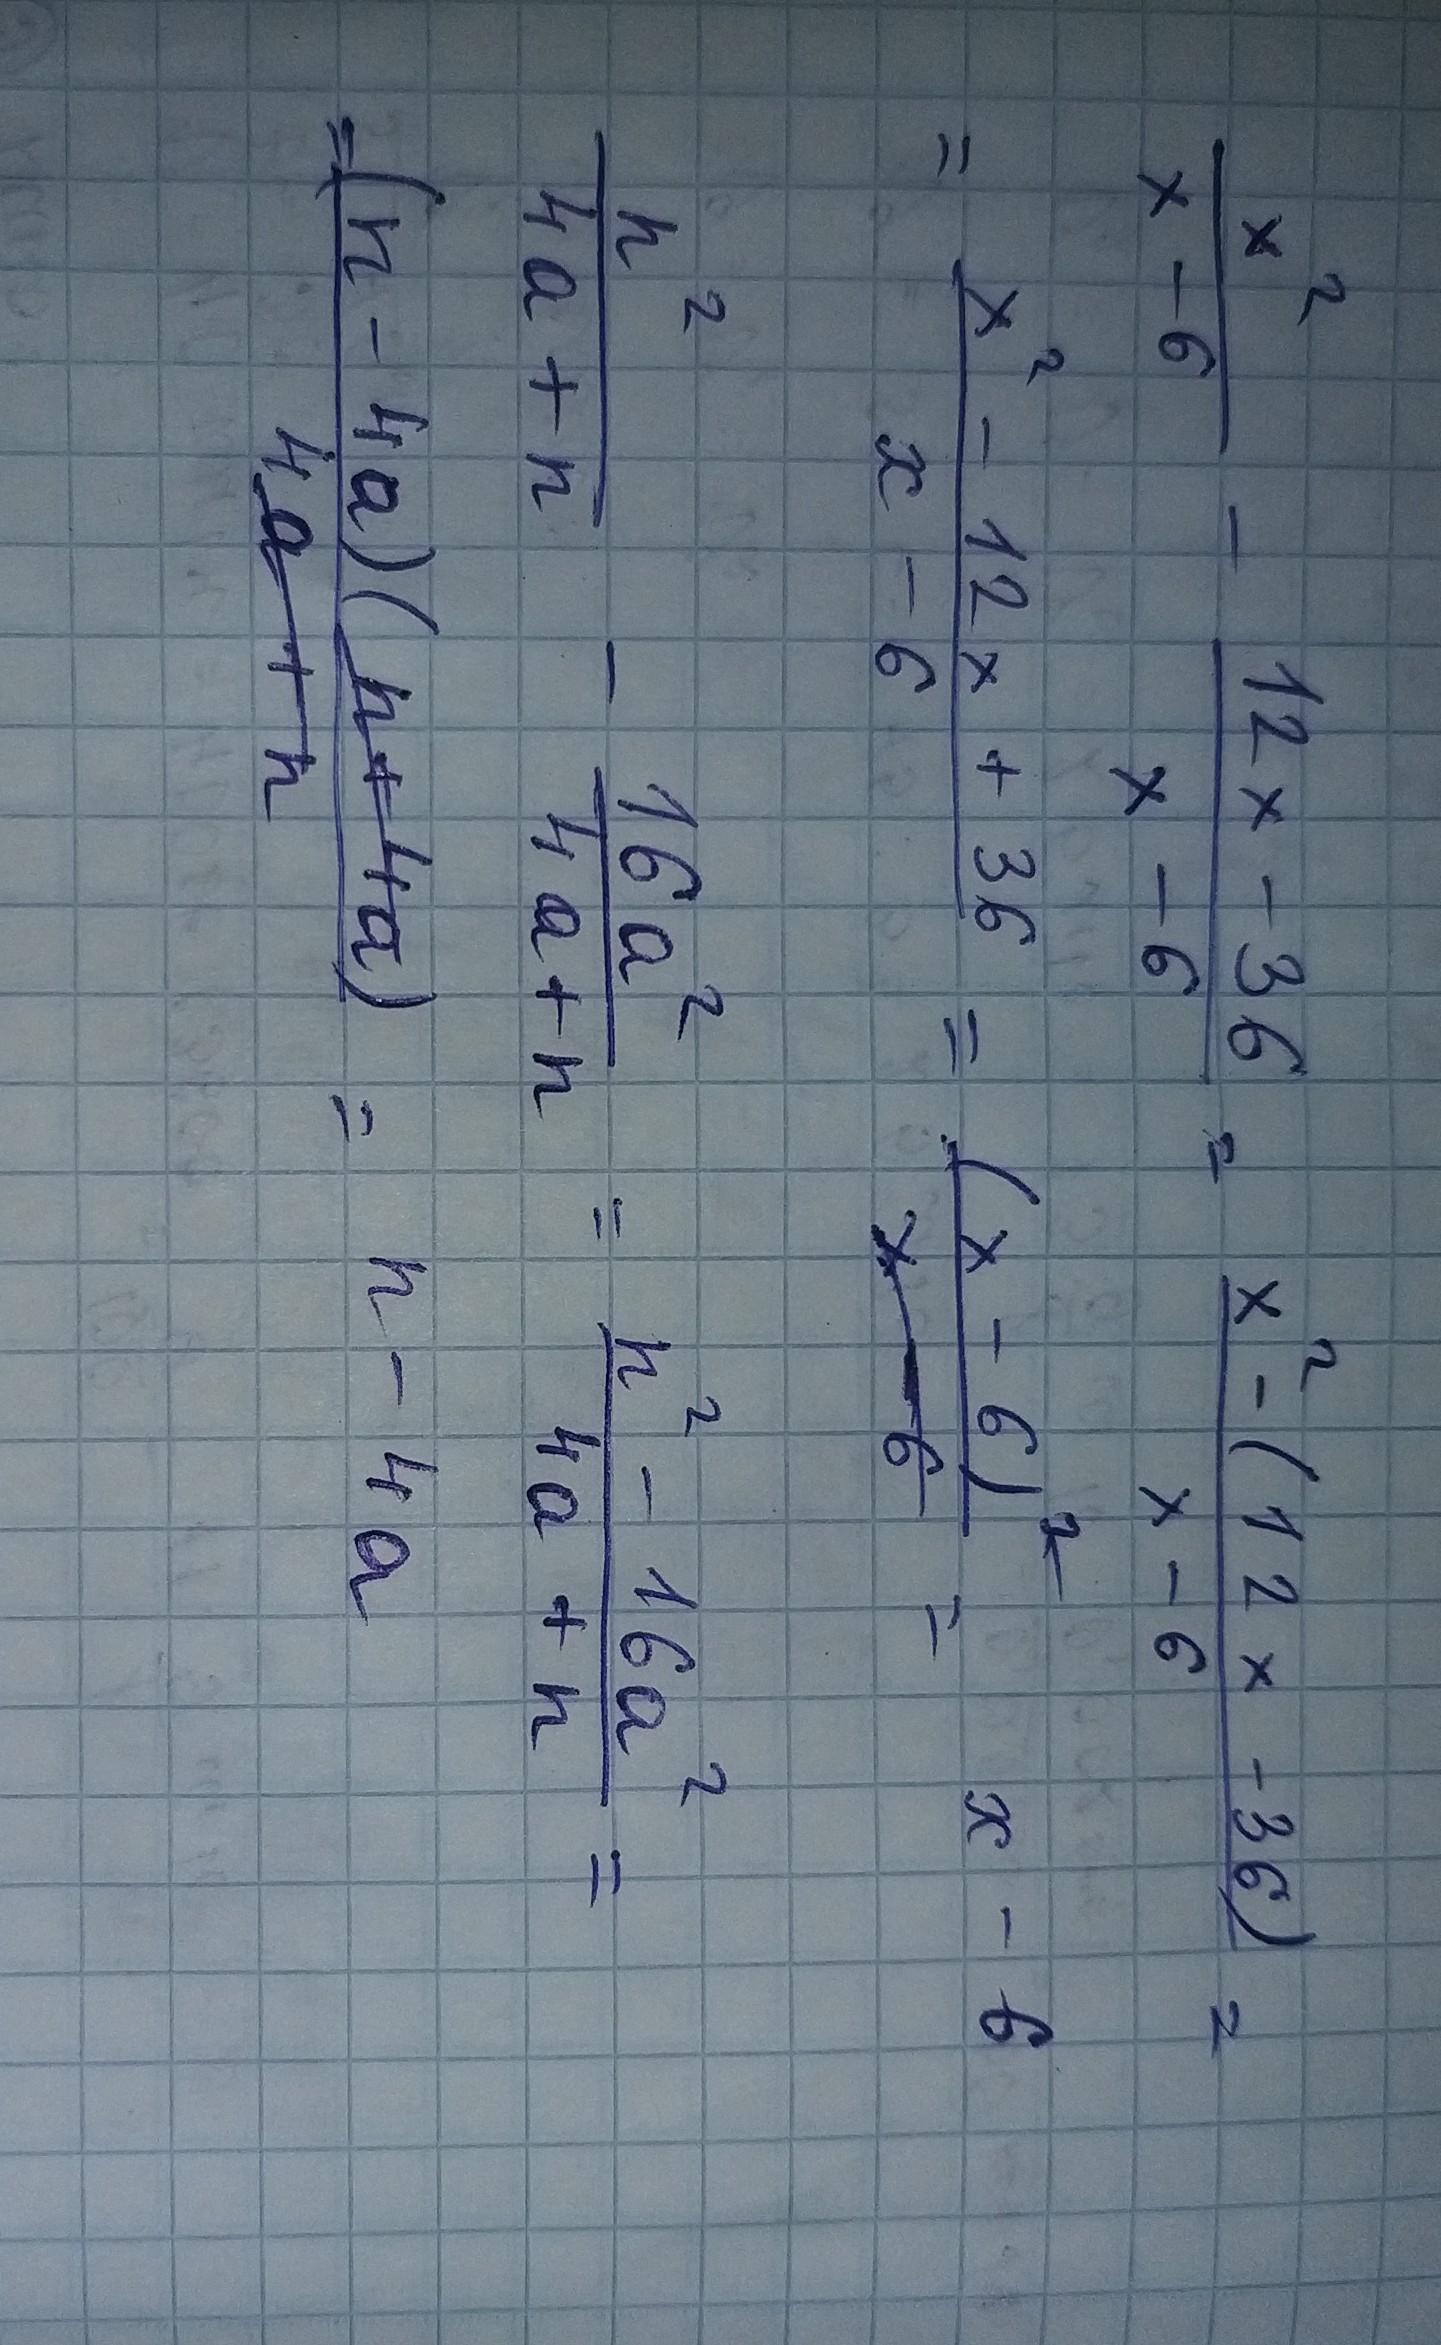 x²/(x - 6) - (12x - 36)/(x - 6) = (x² - (12x - 36))/(x - 6) =
= (x² - 12x + 36)/(x - 6) = (x - 6)²/(x - 6) = x - 6
n²/(4a + n) - 16a²/(4a + n) = (n² - 16a²)/(4a + n) =
= (n - 4a)(n + 4a)/(4a + n) = n - 4a